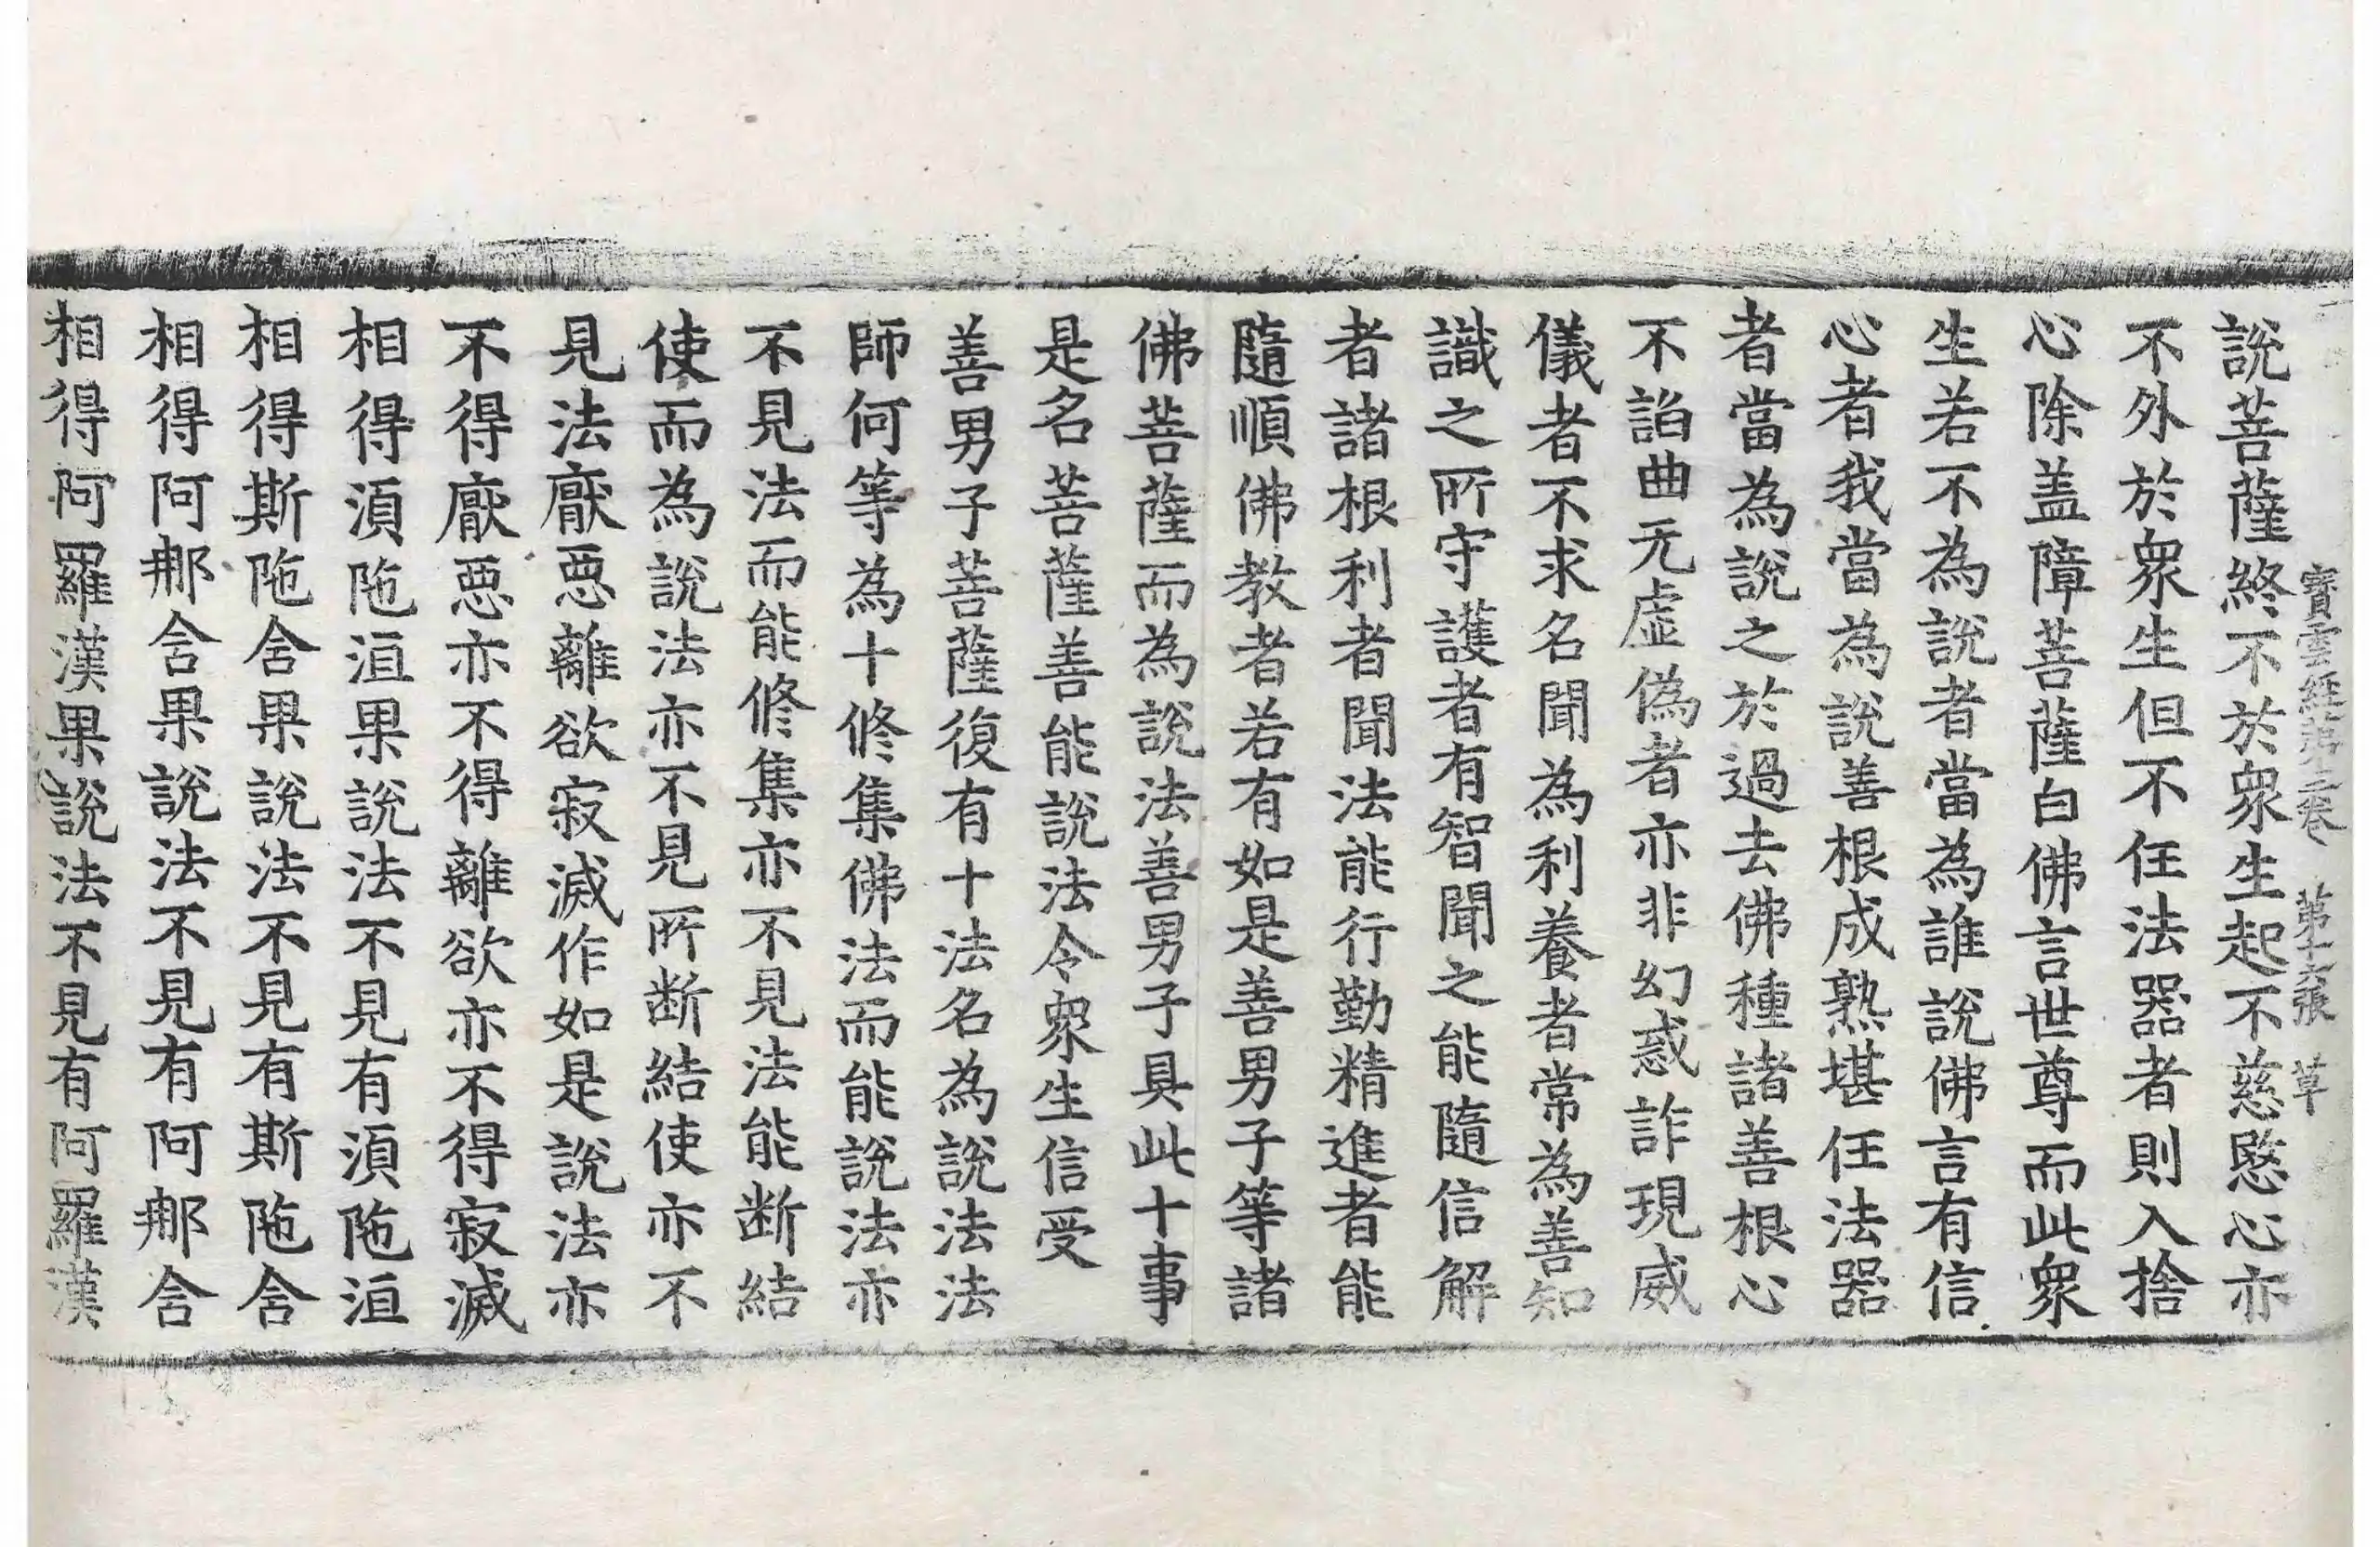 寶雲經第三卷 第十六張 草
說菩薩終不於衆生起不慈愍心亦
不外於衆生但不任法器者則入捨
心除盖障菩薩白佛言世尊而此衆
生若不為說者當為誰說佛言有信
心者我當為說善根成熟堪任法器
者當為說之於過去佛種諸善根心
不諂曲无虛偽者亦非幻惑詐現威
儀者不求名聞為利養者常為善知
識之所守護者有智聞之能隨信解
者諸根利者聞法能行勤精進者能
隨順佛教者若有如是善男子等諸
佛菩薩而為說法善男子具此十事
是名菩薩善能說法令衆生信受
善男子菩薩復有十法名為說法法
師何等為十修集佛法而能說法亦
不見法而能修集亦不見法能断結
使而為說法亦不見所断結使亦不
見法厭惡離欲寂滅作如是說法亦
不得厭惡亦不得離欲亦不得寂滅
相得湏陁洹果說法不見有湏陁洹
相得斯陁舍果說法不見有斯陁舍
相得阿那舍果說法不見有阿那舍
相得阿羅漢果說法不見有阿羅漢